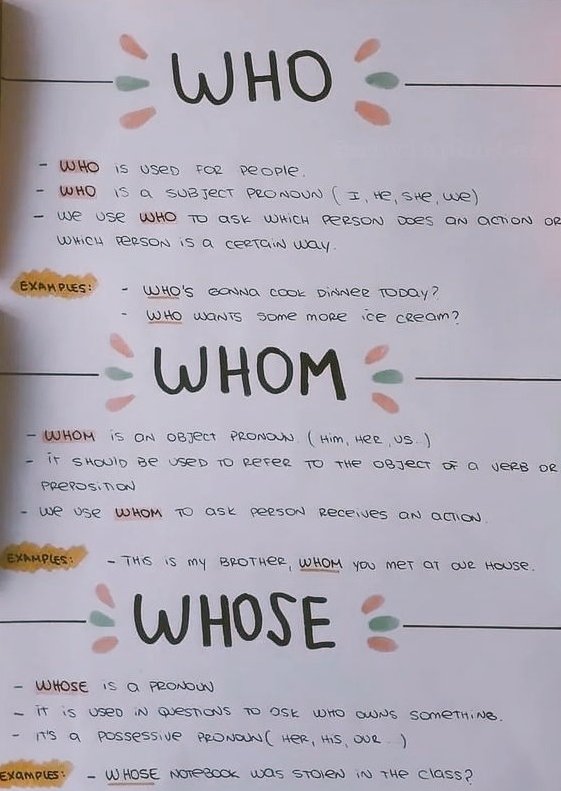 WHO
- WHO IS USED FOR PEOPLE.
- WHO IS A SUBJECT PRONOUN ( I, HE, SHE, WE)
- WE USE WHO TO ASK WHICH PERSON DOES AN ACTION OR
WHICH PERSON IS A CERTAIN WAY.
EXAMPLES: - WHO'S GONNA COOK DINNER TODAY?
- WHO WANTS SOME MORE ICE CREAM?
WHOM
- WHOM IS AN OBJECT PRONOUN. ( HIM, HER, US..)
- IT SHOULD BE USED TO REFER TO THE OBJECT OF A VERB OR
PREPOSITION
- WE USE WHOM TO ASK PERSON RECEIVES AN ACTION.
EXAMPLES: - THIS IS MY BROTHER, WHOM YOU MET AT OUR HOUSE.
WHOSE
- WHOSE IS A PRONOUN
- IT IS USED IN QUESTIONS TO ASK WHO OWNS SOMETHING.
- IT'S A POSSESSIVE PRONOUN( HER, HIS, OUR...)
EXAMPLES: - WHOSE NOTEBOOK WAS STOLEN IN THE CLASS?